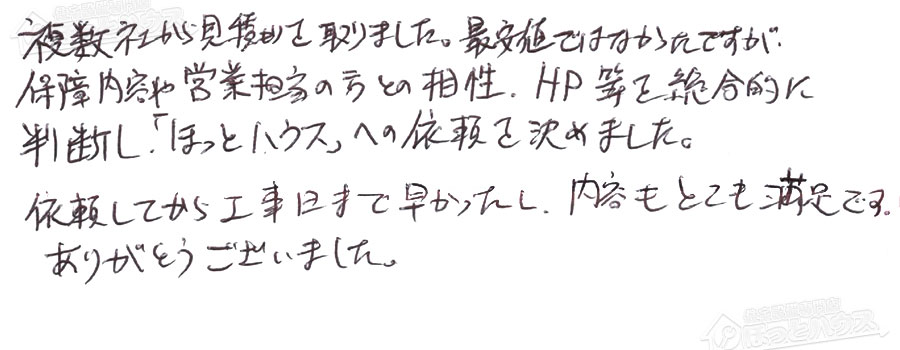 複数社から見積りを取りました。最安値ではなかったですが、
保障内容や営業担当の方との相性、HP等を総合的に
判断し、「ほっとハウス」への依頼を決めました。
依頼してから工事日まで早かったし、内容もとても満足です。
ありがとうございました。
ほっとハウス